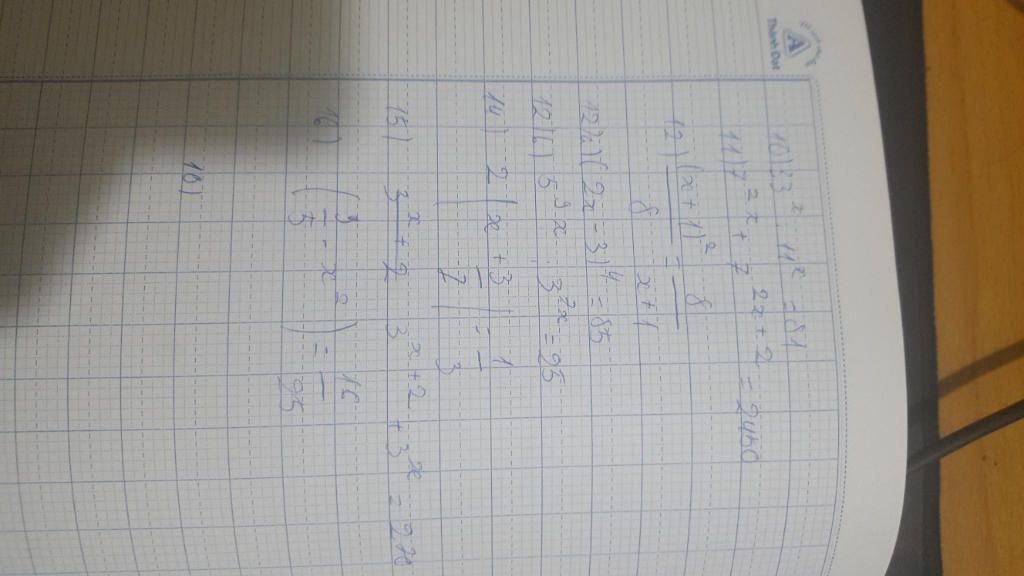 A
Thành Đạt
10) 3^x . 11^x = 81
11) 7^2x + 7^2x+2 = 2450
12) (x + 1)^2 / 8 = 8 / x + 1
12b) (2x - 3)^4 = 85
12b) 5^3x . 3^2x = 25
14) 2 | x + 3/7 | = 1/3
15) 3^x+2 3^x+2 + 3^x = 270
16) (3/5 - x^2) = 16/25
16)